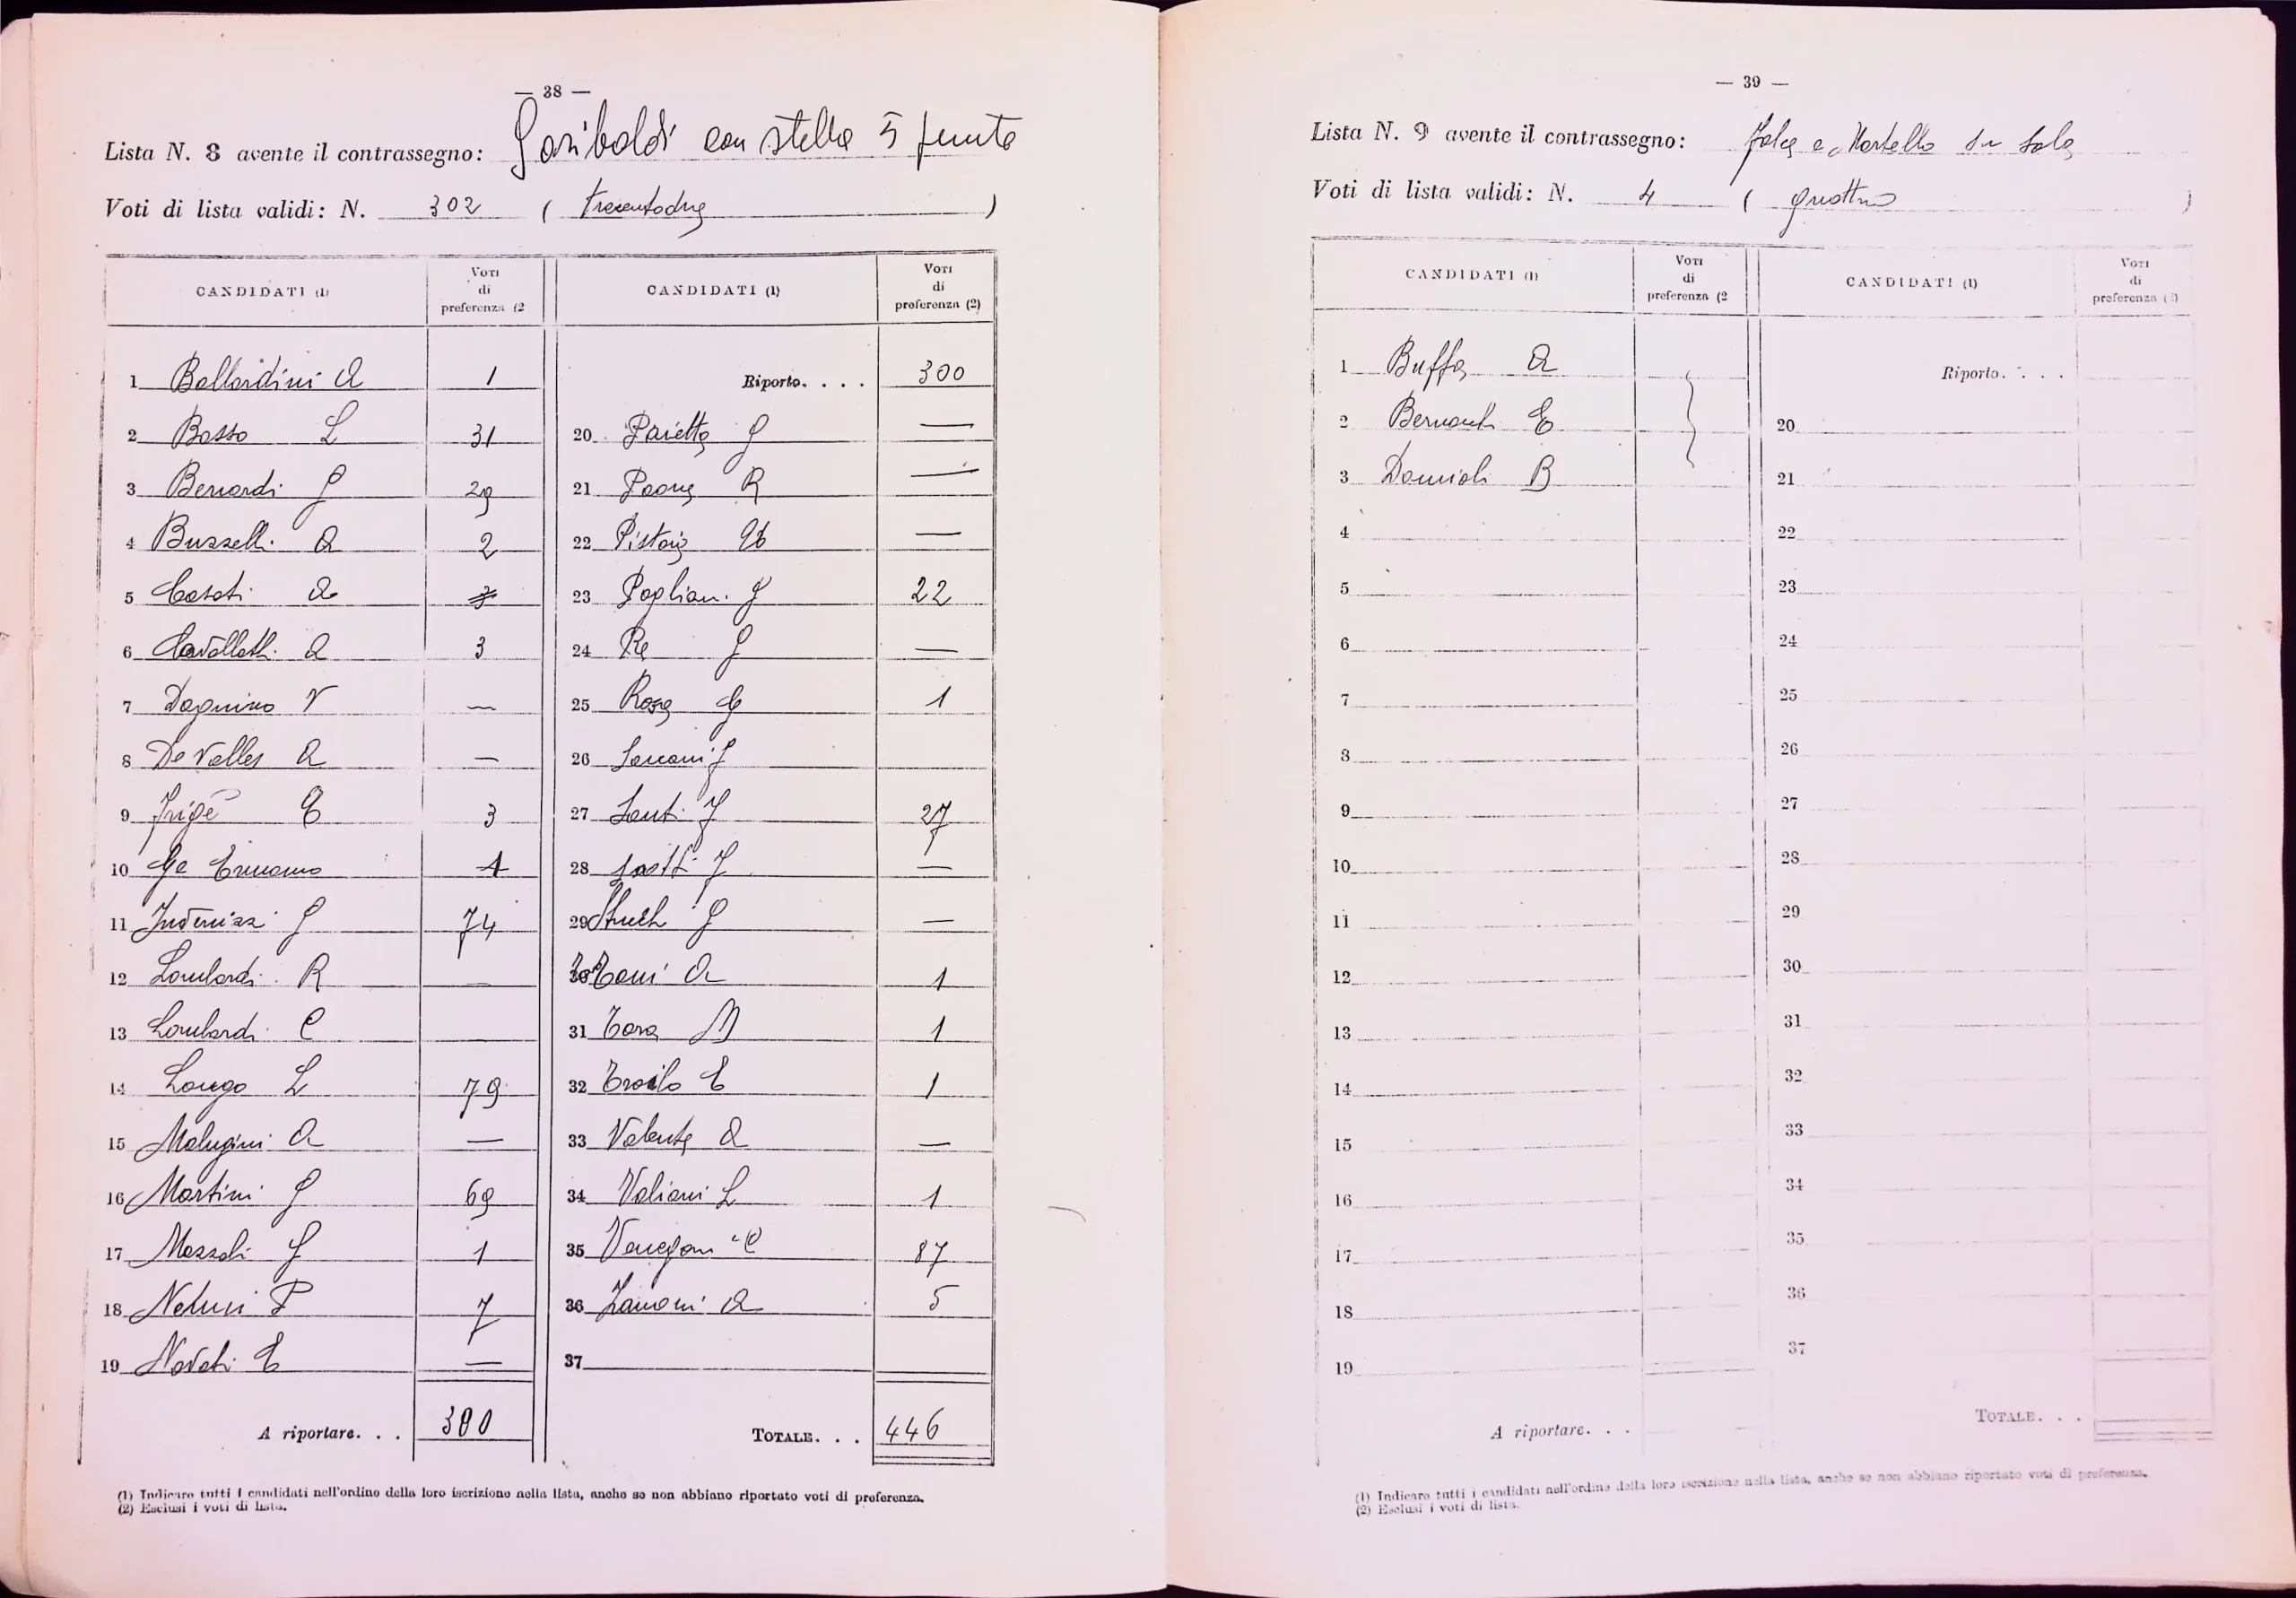 — 38 —
Lista N. 8 avente il contrassegno: Garibaldi con stella 5 punte
Voti di lista validi: N. 302 ( trecentodue )
CANDIDATI (1) Voti di preferenza (2 CANDIDATI (1) Voti di preferenza (2)
1 Ballardini A 1 Riporto. . . . 300
2 Basso L 31 20 Paietta G —
3 Berardi G 29 21 Paone R —
4 Buzzelli A 2 22 Pistoia —
5 Casati A 23 Pogliani G 22
6 Cavallotti A 3 24 Re G —
7 Dagnino V — 25 Rosa G 1
8 De Valles A — 26
9 Frigè E 3 27 Santi F 27
10 Ge Ermanno 1 28 F —
11 Invernizzi G 74 29 G —
12 Lombardi R — 30 Toni A 1
13 Lombardi C 31 M 1
14 Longo L 79 32 Troilo E 1
15 Malagini A — 33 Valente A —
16 Martini G 69 34 Valiani L 1
17 Mazzali G 1 35 Venegoni C 87
18 P 7 36 Zanoni A 5
19 Novati E — 37
A riportare. . . 300 Totale. . . 446
(1) Indicare tutti i candidati nell'ordine della loro iscrizione nella lista, anche se non abbiano riportato voti di preferenza.
(2) Esclusi i voti di lista.
— 39 —
Lista N. 9 avente il contrassegno: falce e Martello su sole
Voti di lista validi: N. 4 ( quattro )
CANDIDATI (1) Voti di preferenza (2 CANDIDATI (1) Voti di preferenza (2)
1 Buffa A Riporto. . . .
2 E 20
3 Damioli B 21
4 22
5 23
6 24
7 25
8 26
9 27
10 28
11 29
12 30
13 31
14 32
15 33
16 34
17 35
18 36
19 37
A riportare. . . Totale. . .
(1) Indicare tutti i candidati nell'ordine della loro iscrizione nella lista, anche se non abbiano riportato voti di preferenza.
(2) Esclusi i voti di lista.